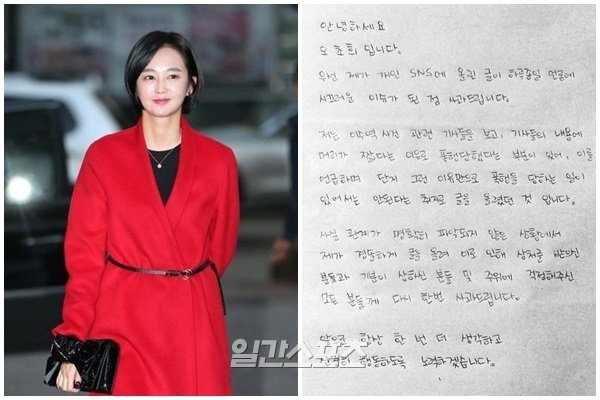 안녕하세요
오초희 입니다.
우선 제가 개인 SNS에 올린 글이 하루종일 언론에
시끄러운 이슈가 된 점 사과드립니다.
저는 이수역 사건 관련 기사들을 보고, 기사들의 내용에
머리가 짧다는 이유로 폭행당했다는 부분이 있어, 이를
언급하며 단지 그런 이유만으로 폭행을 당하는 일이
있어서는 안된다는 취지로 글을 올렸던 것 입니다.
사실 관계가 명확히 파악되지 않은 상황에서
제가 경솔하게 글을 올려 이로 인해 상처를 받으신
분들과 기분이 상하신 분들 및 주위에 걱정해주신
모든 분들께 다시 한번 사과드립니다.
앞으로 항상 한 번 더 생각하고
행동하도록 노력하겠습니다.
일간스포츠